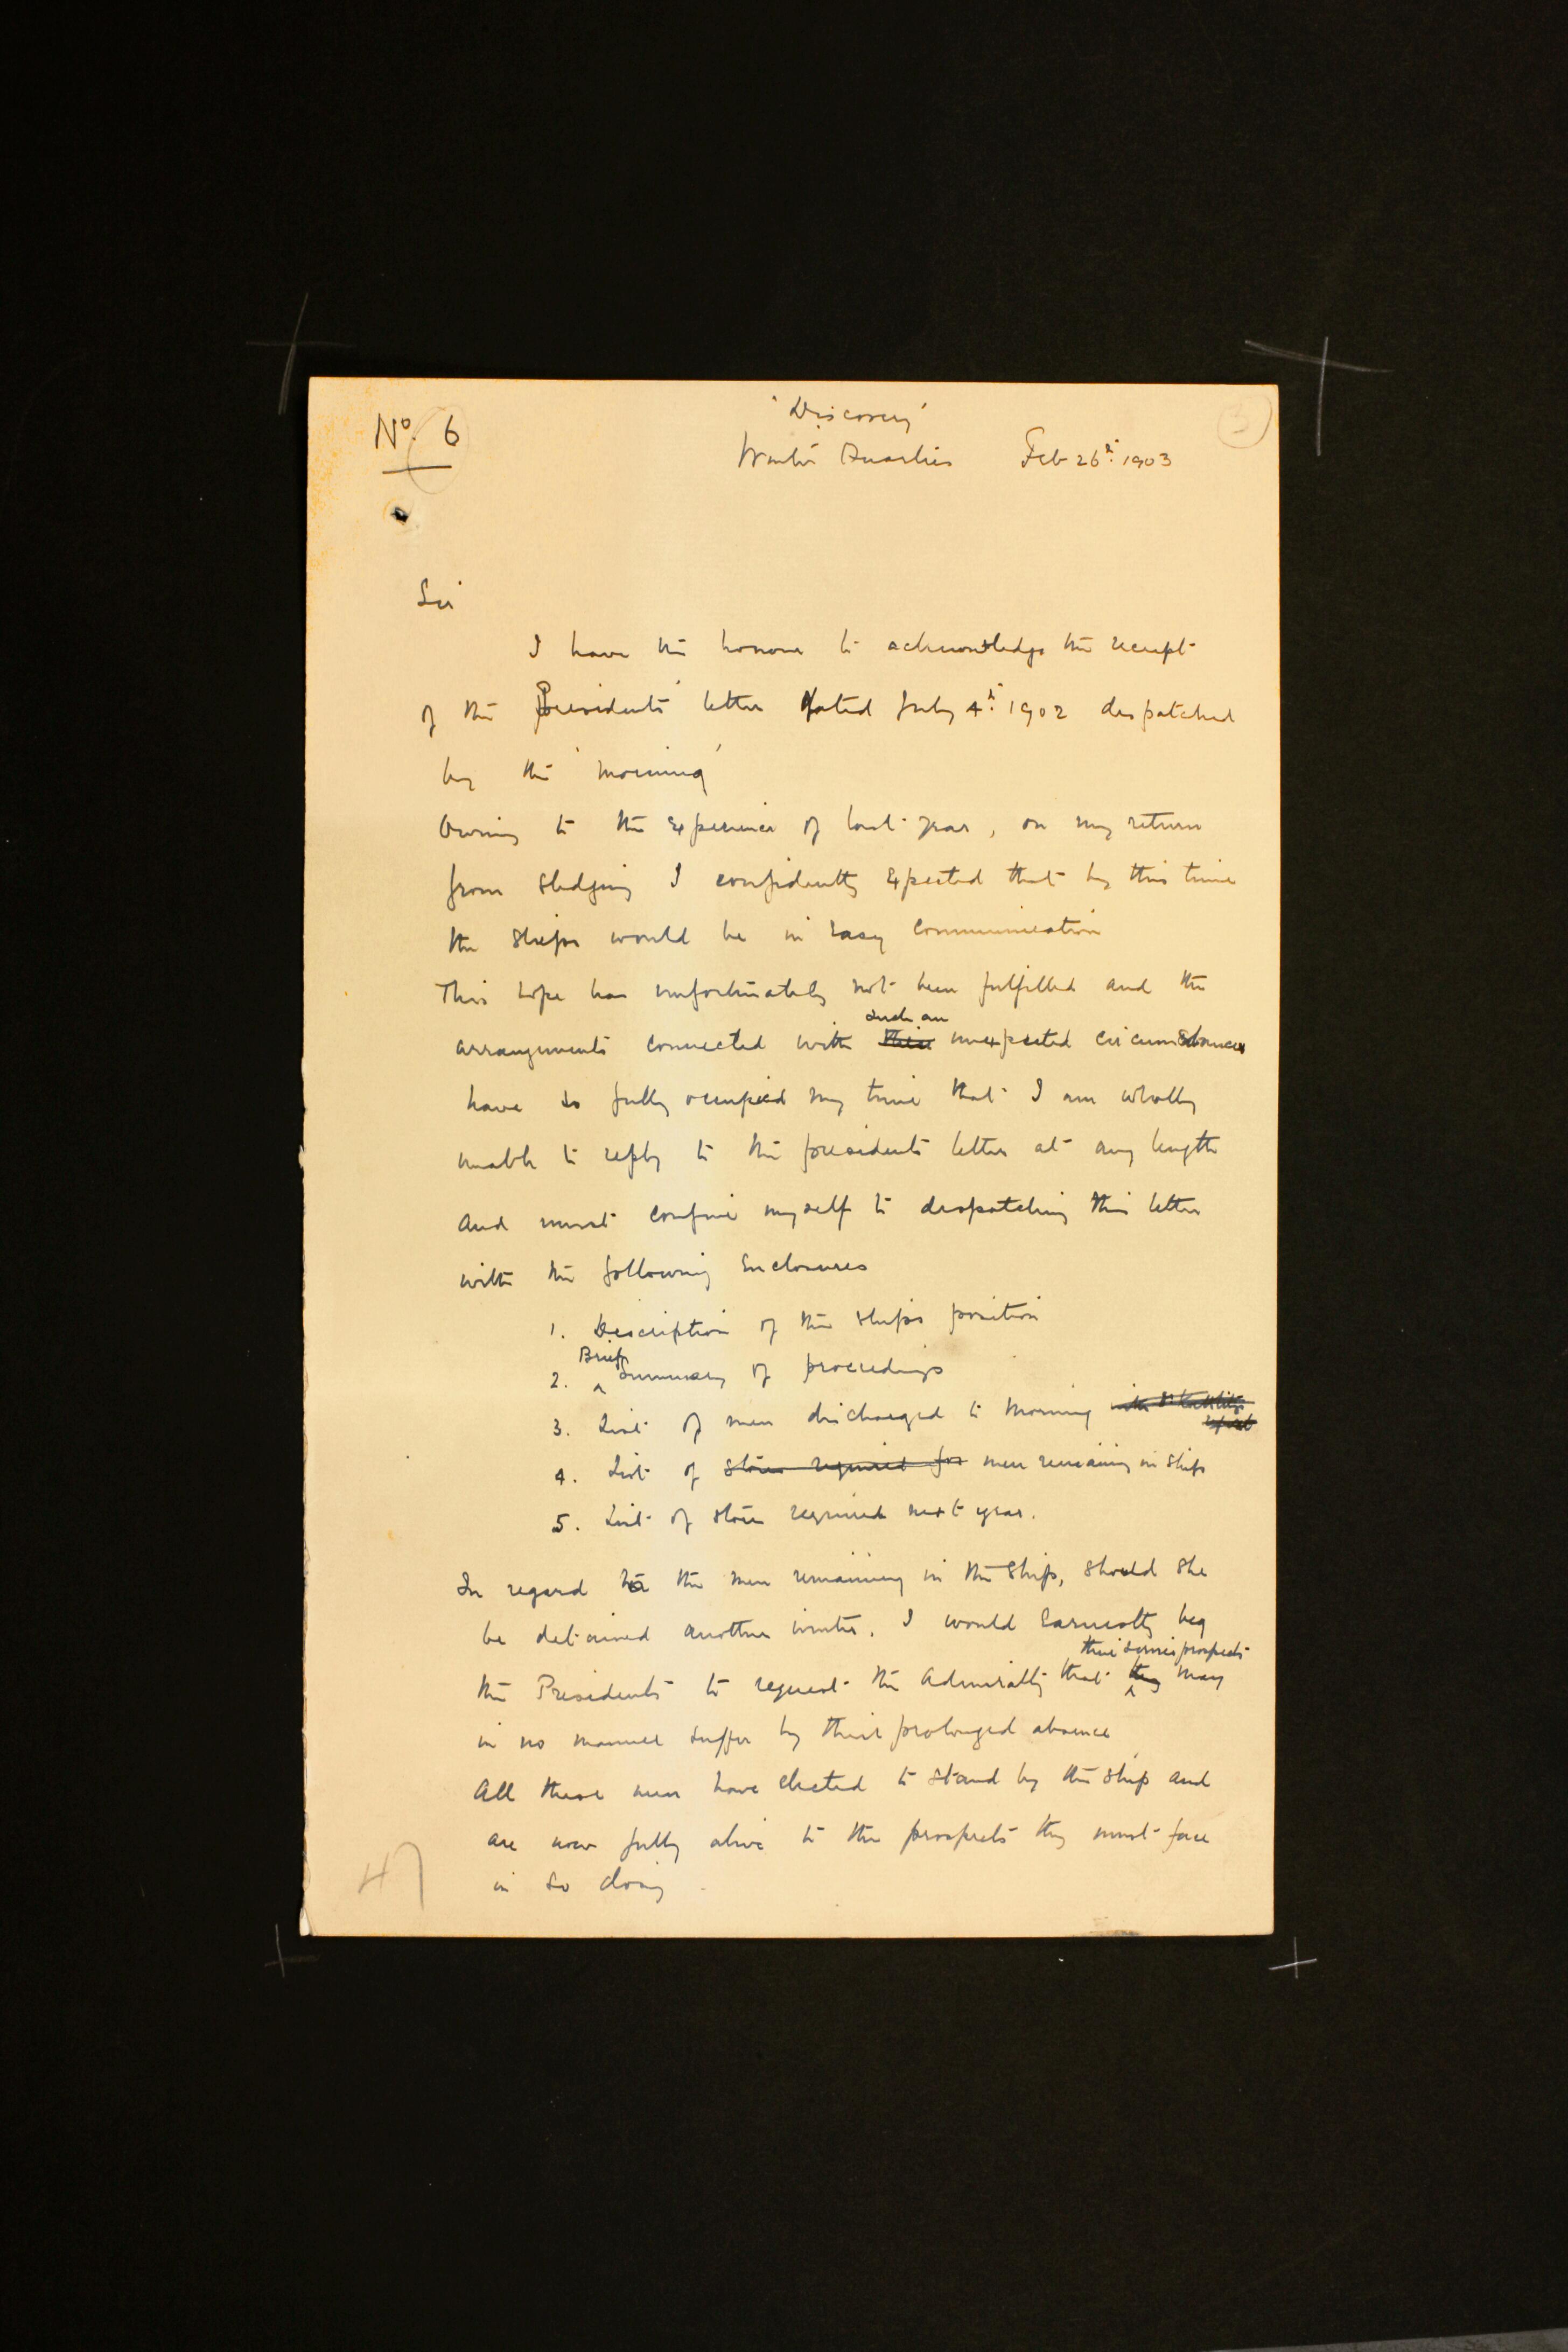 No. 6
3
'Discovery'
Winter Quarters Feb 26th 1903
Sir
I have the honour to acknowledge the receipt
of the Presidents' letter dated July 4th 1902 despatched
by the 'Morning'
Owing to the experience of last year, on my return
from sledging I confidently expected that by this time
the ships would be in easy communication
This hope has unfortunately not been fulfilled and the
such an
arrangements connected with unexpected circumstances
have so fully occupied my time that I am wholly
unable to reply to the presidents letter at any length
and must confine myself to despatching this letter
with the following enclosures
1. Description of the ships position
Brief
2. ^ Summary of proceedings
3. List of men discharged to Morning
4. List of stores required for men remaining in ship
5. List of stores required next year.
In regard to the men remaining in the ship, should she
be detained another winter. I would earnestly beg
their service prospects
the Presidents to request the Admiralty that they ^ may
in no manner suffer by their prolonged absence
All these men have elected to stand by the ship and
are now fully alive to the prospects they must face
in so doing.
47